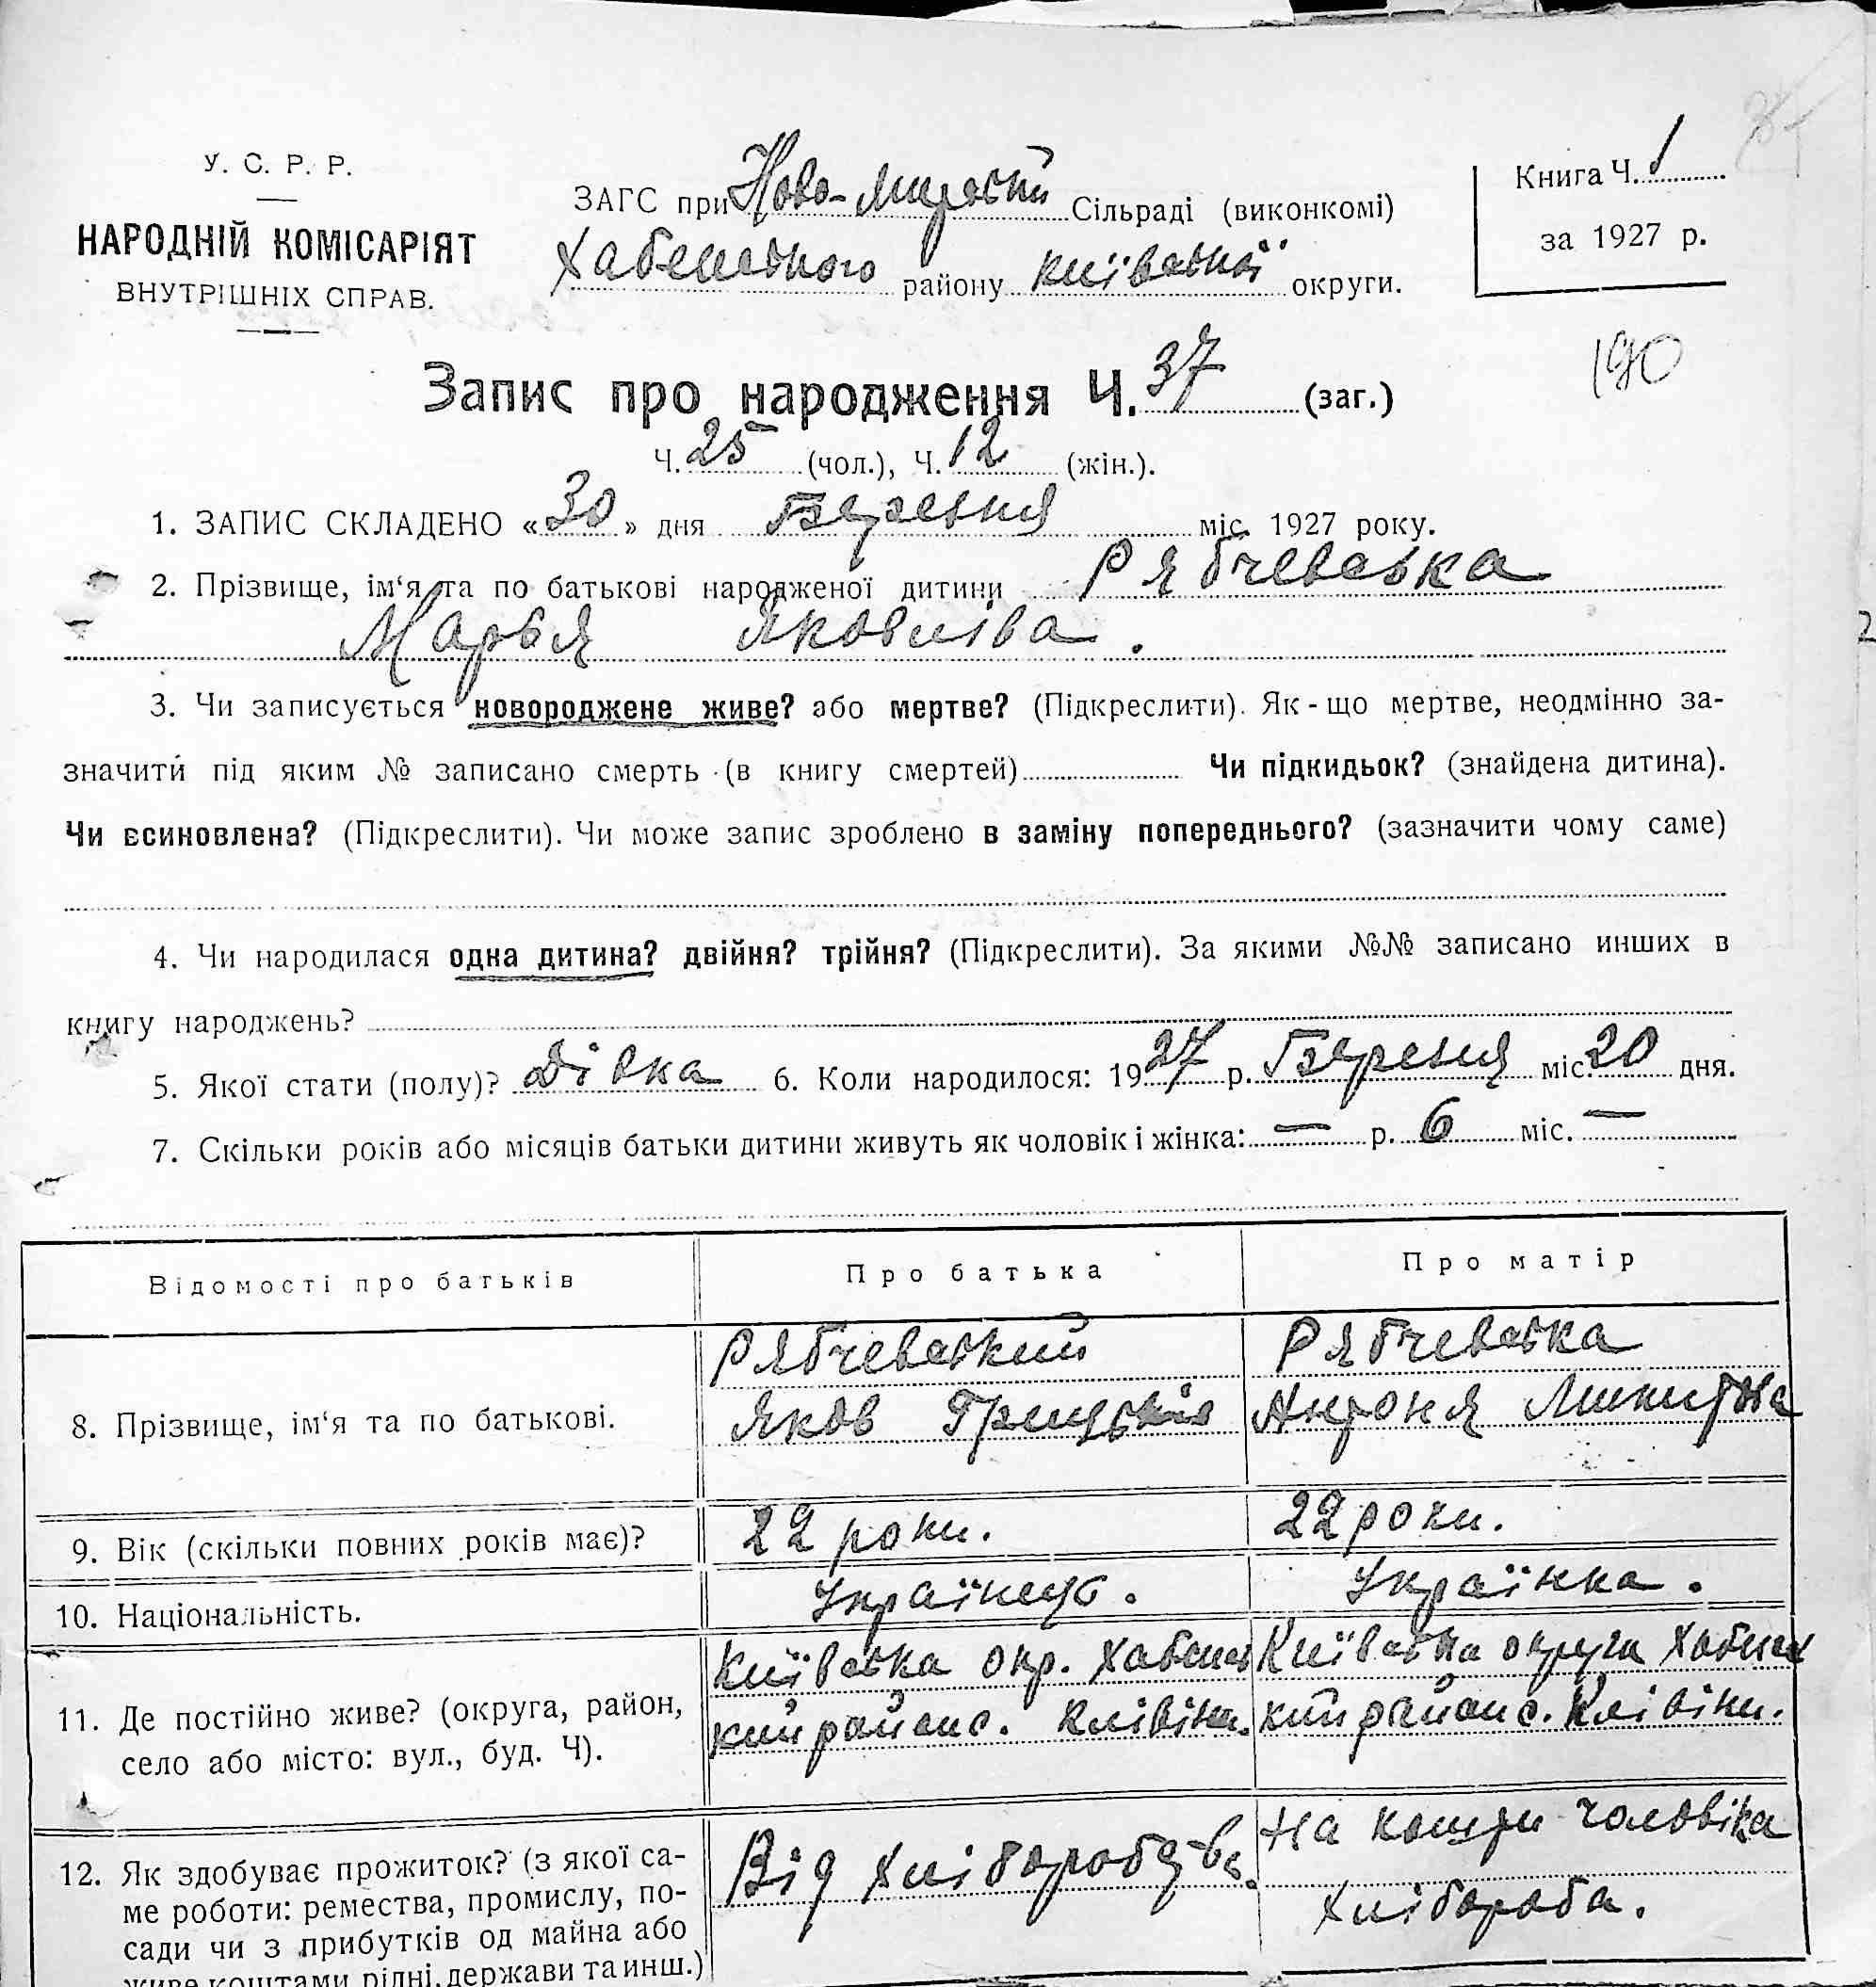 У. С. Р. Р.
НАРОДНІЙ КОМІСАРІЯТ
ВНУТРІШНІХ СПРАВ.
ЗАГС при Ново-Мирській Сільраді (виконкомі)
Хабенського району Київської округи.
Книга Ч. 1
за 1927 р.
190
Запис про народження Ч. 37 (заг.)
Ч. 25 (чол.), Ч. 12 (жін.).
1. ЗАПИС СКЛАДЕНО «30» дня Березня міс. 1927 року.
2. Прізвище, ім‘я та по батькові народженої дитини Рябчевська
Марья Яковліва.
3. Чи записується новороджене живе? або мертве? (Підкреслити). Як-що мертве, неодмінно за-
значити під яким № записано смерть (в книгу смертей) Чи підкидьок? (знайдена дитина).
Чи всиновлена? (Підкреслити). Чи може запис зроблено в заміну попереднього? (зазначити чому саме)
4. Чи народилася одна дитина? двійня? трійня? (Підкреслити). За якими №№ записано инших в
книгу народжень?
5. Якої стати (полу)? Дівка 6. Коли народилося: 1927 р. Березня міс. 20 дня.
7. Скільки років або місяців батьки дитини живуть як чоловік і жінка: — р. 6 міс. —
Відомості про батьків Про батька Про матір
8. Прізвище, ім‘я та по батькові.
Рябчевський
Яков Грицьків
Рябчевська
9. Вік (скільки повних років має)? 22 роки. 22 роки.
10. Національність. Українець. Українка.
11. Де постійно живе? (округа, район,
село або місто: вул., буд. Ч).
Київська окр. Хабенс
кий район с. Клівіни.
Київська округа Хабенс
кий район с. Клівіни.
12. Як здобуває прожиток? (з якої са-
ме роботи: ремества, промислу, по-
сади чи з прибутків од майна або
живе коштами рідні, держави та инш.)
Від хліборобства.
На кошти чоловіка
хлібороба.